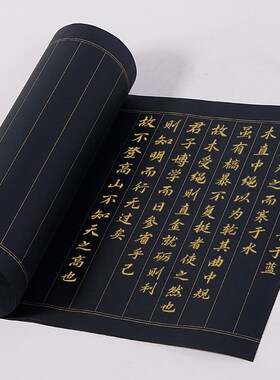 于蓝
为之而寒于水
以为轮其曲中规
虽有槁暴不复挺者使之然也
故木受绳则直金就砺则利
君子博学而日参省乎己
则知明而行无过矣
故不登高山不知天之高也